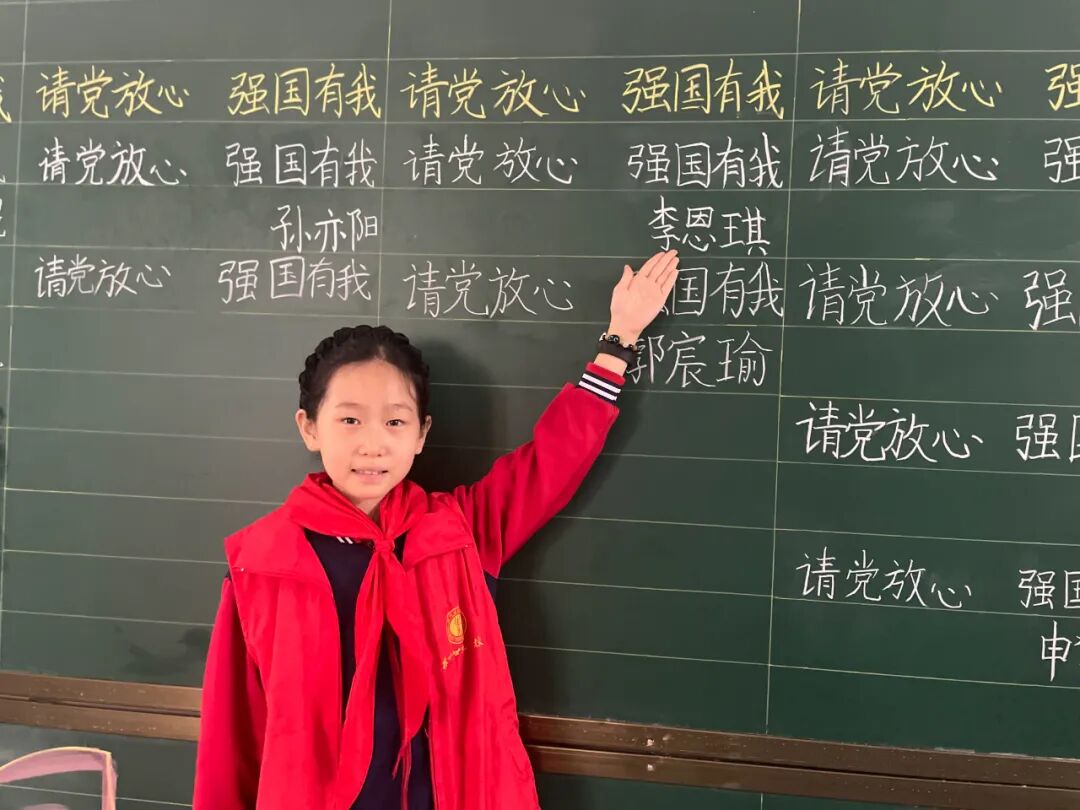 我 请党放心 强国有我 请党放心 强国有我 请党放心 强
请党放心 强国有我 请党放心 强国有我 请党放心 强
孙亦阳 李恩琪
请党放心 强国有我 请党放心 国有我 请党放心 强
郭宸瑜
请党放心 强国
请党放心 强国
申